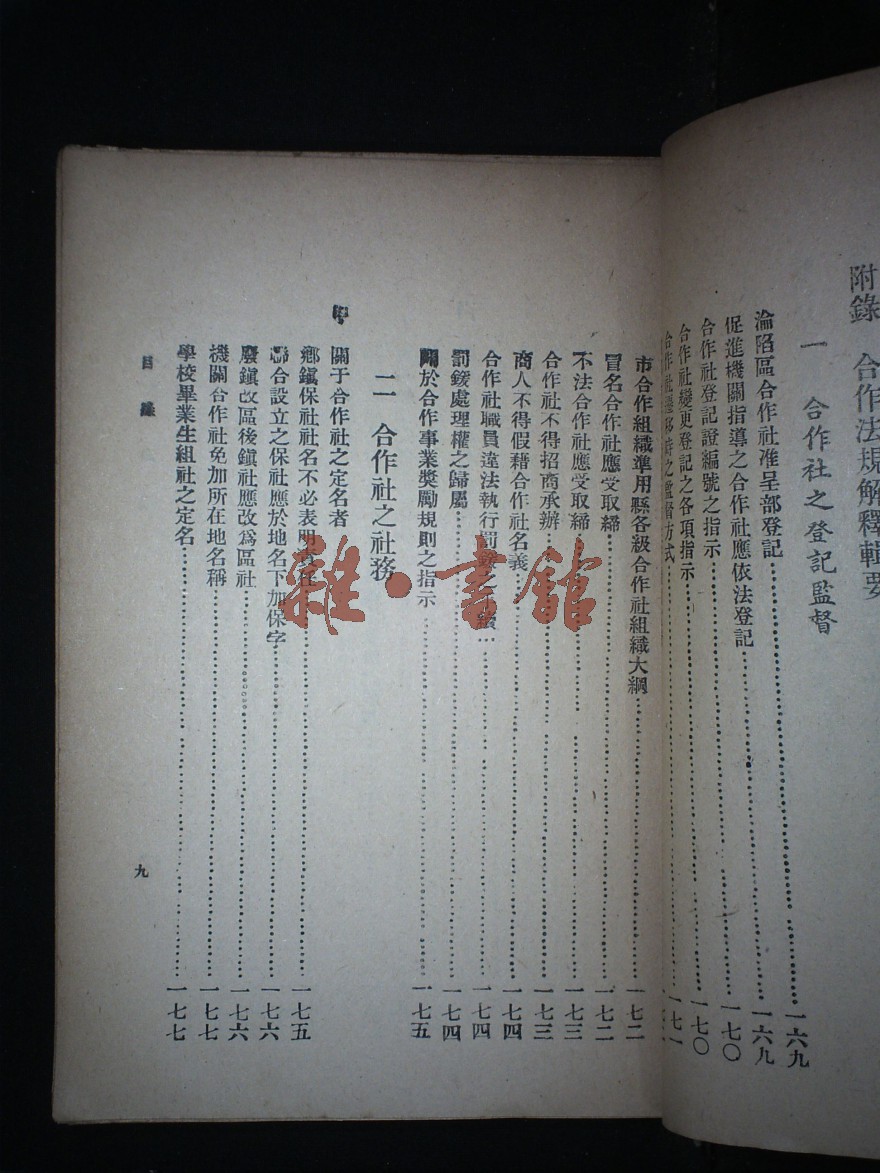 附錄　合作法規解釋輯要
一　合作社之登記監督
淪陷區合作社准呈部登記……一六九
促進機關指導之合作社應依法登記……一六九
合作社登記證編號之指示……一七〇
合作社變更登記之各項指示……一七〇
合作社遷移時之監督方式……一七一
市合作組織準用縣各級合作社組織大綱……一七二
冒名合作社應受取締……一七二
不法合作社應受取締……一七三
合作社不得招商承辦……一七三
商人不得假藉合作社名義……一七四
合作社職員違法執行罰鍰之……一七四
罰鍰處理權之歸屬……一七四
關於合作事業獎勵規則之指示……一七五
二　合作社之社務
甲　關于合作社之定名者
鄉鎮保社社名不必表明責任……一七五
聯合設立之保社應於地名下加保字……一七六
廢鎮改區後鎮社應改爲區社……一七六
機關合作社免加所在地名稱……一七七
學校畢業生組社之定名……一七七
目錄
九
雜·書館